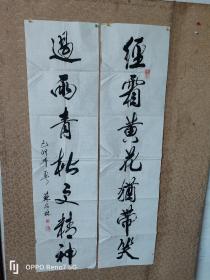 經霜黄花猶帶笑
過雨青松更精神
OPPO Reno7 5G